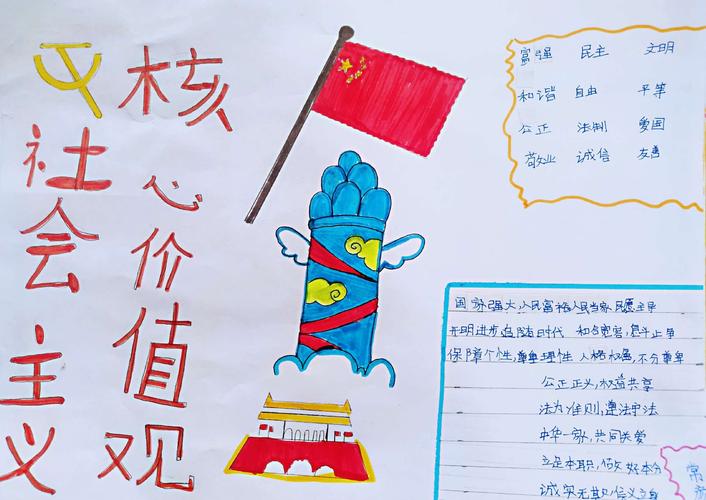 社会主义
核心价值观
富强 民主 文明
和谐 自由 平等
公正 法制 爱国
敬业 诚信 友善
国家强大,人民富裕人民当家,民愿主导
开明进步追随时代 和合宽容,息斗止争
保障个性,尊卑理性 人格权益,不分尊卑
公正正义,权益共享
法为准则,遵法守法
中华一家,共同关爱
立足本职,做好本分
诚实无欺,信义立
常